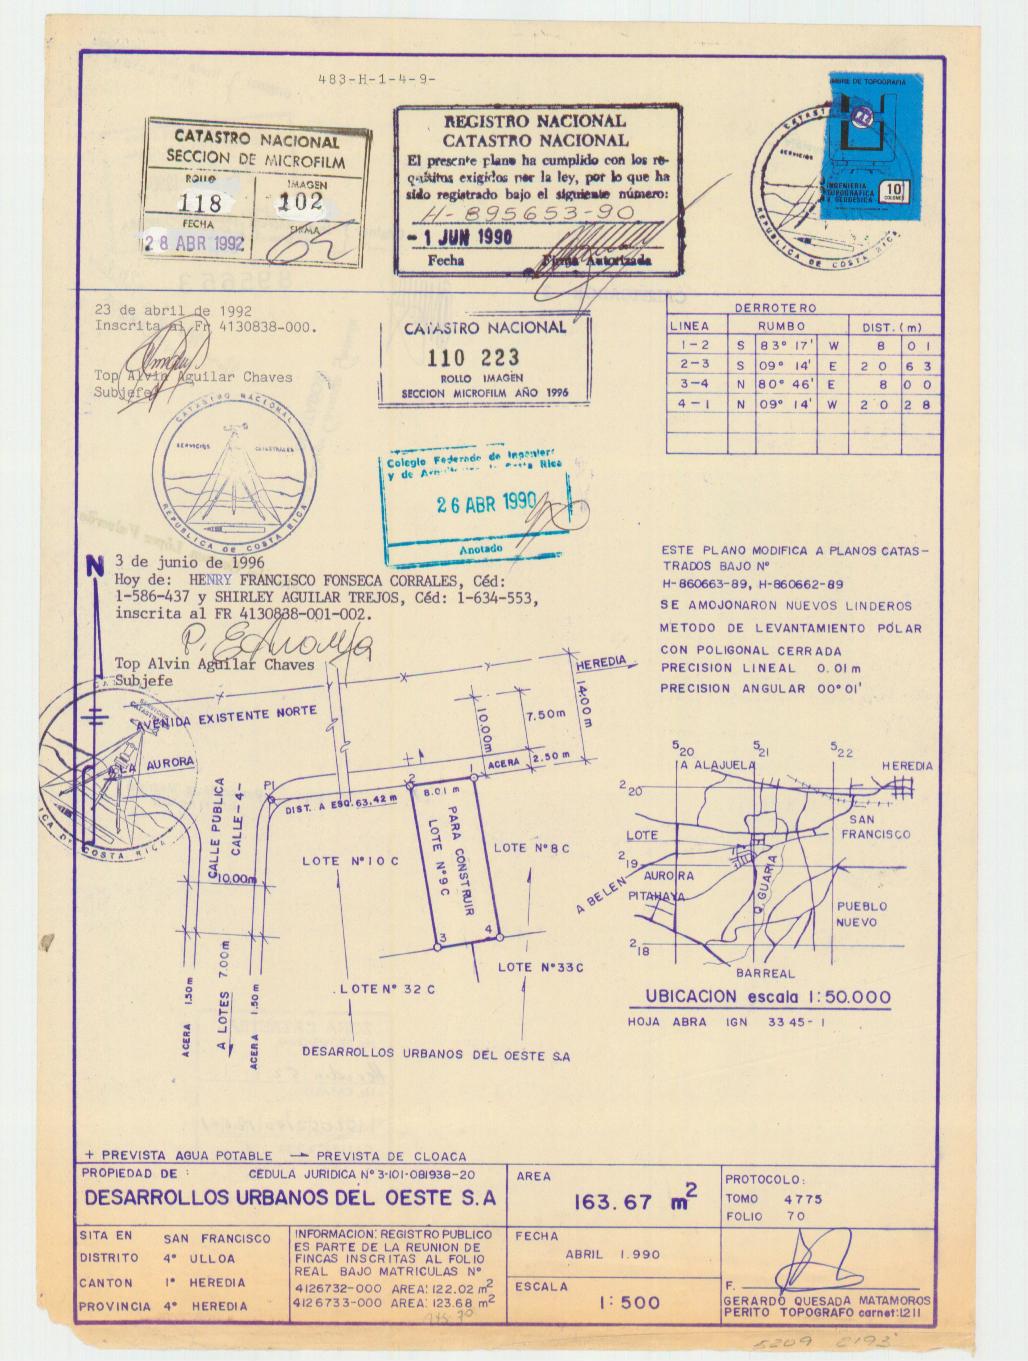 483-H-1-4-9-
CATASTRO NACIONAL
SECCION DE MICROFILM
ROLLO IMAGEN
118 102
FECHA FIRMA
28 ABR 1992
REGISTRO NACIONAL
CATASTRO NACIONAL
El presente plano ha cumplido con los re-
quisitos exigidos por la ley, por lo que ha
sido registrado bajo el siguiente número:
H-895653-90
- 1 JUN 1990
Fecha Firma Autorizada
TIMBRE DE TOPOGRAFIA
INGENIERIA
TOPOGRAFICA
Y GEODESICA
10
COLONES
SERVICIOS
REPUBLICA DE COSTA RICA
23 de abril de 1992
Inscrita al Fr 4130838-000.
Top Alvin Aguilar Chaves
Subjefe
CATASTRO NACIONAL
110 223
ROLLO IMAGEN
SECCION MICROFILM AÑO 1996
DERROTERO
LINEA RUMBO DIST. (m)
1-2 S 83° 17' W 8 01
2-3 S 09° 14' E 20 63
3-4 N 80° 46' E 8 00
4-1 N 09° 14' W 20 28
CATASTRO NACIONAL
SERVICIOS CATASTRALES
REPUBLICA DE COSTA RICA
Colegio Federado de Ingenieros
y de Arquitectos de Costa Rica
26 ABR 1990
Anotado
N
3 de junio de 1996
Hoy de: HENRY FRANCISCO FONSECA CORRALES, Céd:
1-586-437 y SHIRLEY AGUILAR TREJOS, Céd: 1-634-553,
inscrita al FR 4130838-001-002.
Top Alvin Aguilar Chaves
Subjefe
ESTE PLANO MODIFICA A PLANOS CATAS-
TRADOS BAJO N°
H-860663-89, H-860662-89
SE AMOJONARON NUEVOS LINDEROS
METODO DE LEVANTAMIENTO POLAR
CON POLIGONAL CERRADA
PRECISION LINEAL 0.01 m
PRECISION ANGULAR 00° 01'
HEREDIA
14.00m
10.00m
7.50m
AVENIDA EXISTENTE NORTE
ACERA 2.50 m
A LA AURORA
P1
2
1
8.01 m
DIST. A ESQ. 63.42 m
CALLE PUBLICA
CALLE -4-
10.00m
PARA CONSTRUIR
LOTE N°9C
LOTE N°10 C
LOTE N°8C
3
4
LOTE N°33C
LOTE N° 32 C
ACERA 1.50m
A LOTES 7.00m
ACERA 1.50m
DESARROLLOS URBANOS DEL OESTE S.A
520 521 522
A ALAJUELA
HEREDIA
220
SAN
FRANCISCO
LOTE
219
AURORA
A BELEN
PITAHAYA
Q. GUARIA
PUEBLO
NUEVO
218
BARREAL
UBICACION escala 1:50.000
HOJA ABRA IGN 3345-1
+ PREVISTA AGUA POTABLE → PREVISTA DE CLOACA
PROPIEDAD DE : CEDULA JURIDICA N° 3-101-081938-20
DESARROLLOS URBANOS DEL OESTE S.A
AREA
163.67 m2
PROTOCOLO:
TOMO 4775
FOLIO 70
SITA EN SAN FRANCISCO
DISTRITO 4° ULLOA
CANTON 1° HEREDIA
PROVINCIA 4° HEREDIA
INFORMACION: REGISTRO PUBLICO
ES PARTE DE LA REUNION DE
FINCAS INSCRITAS AL FOLIO
REAL BAJO MATRICULAS N°
4126732-000 AREA: 122.02 m2
4126733-000 AREA: 123.68 m2
FECHA
ABRIL 1.990
ESCALA
1:500
F.
GERARDO QUESADA MATAMOROS
PERITO TOPOGRAFO carnet:1211